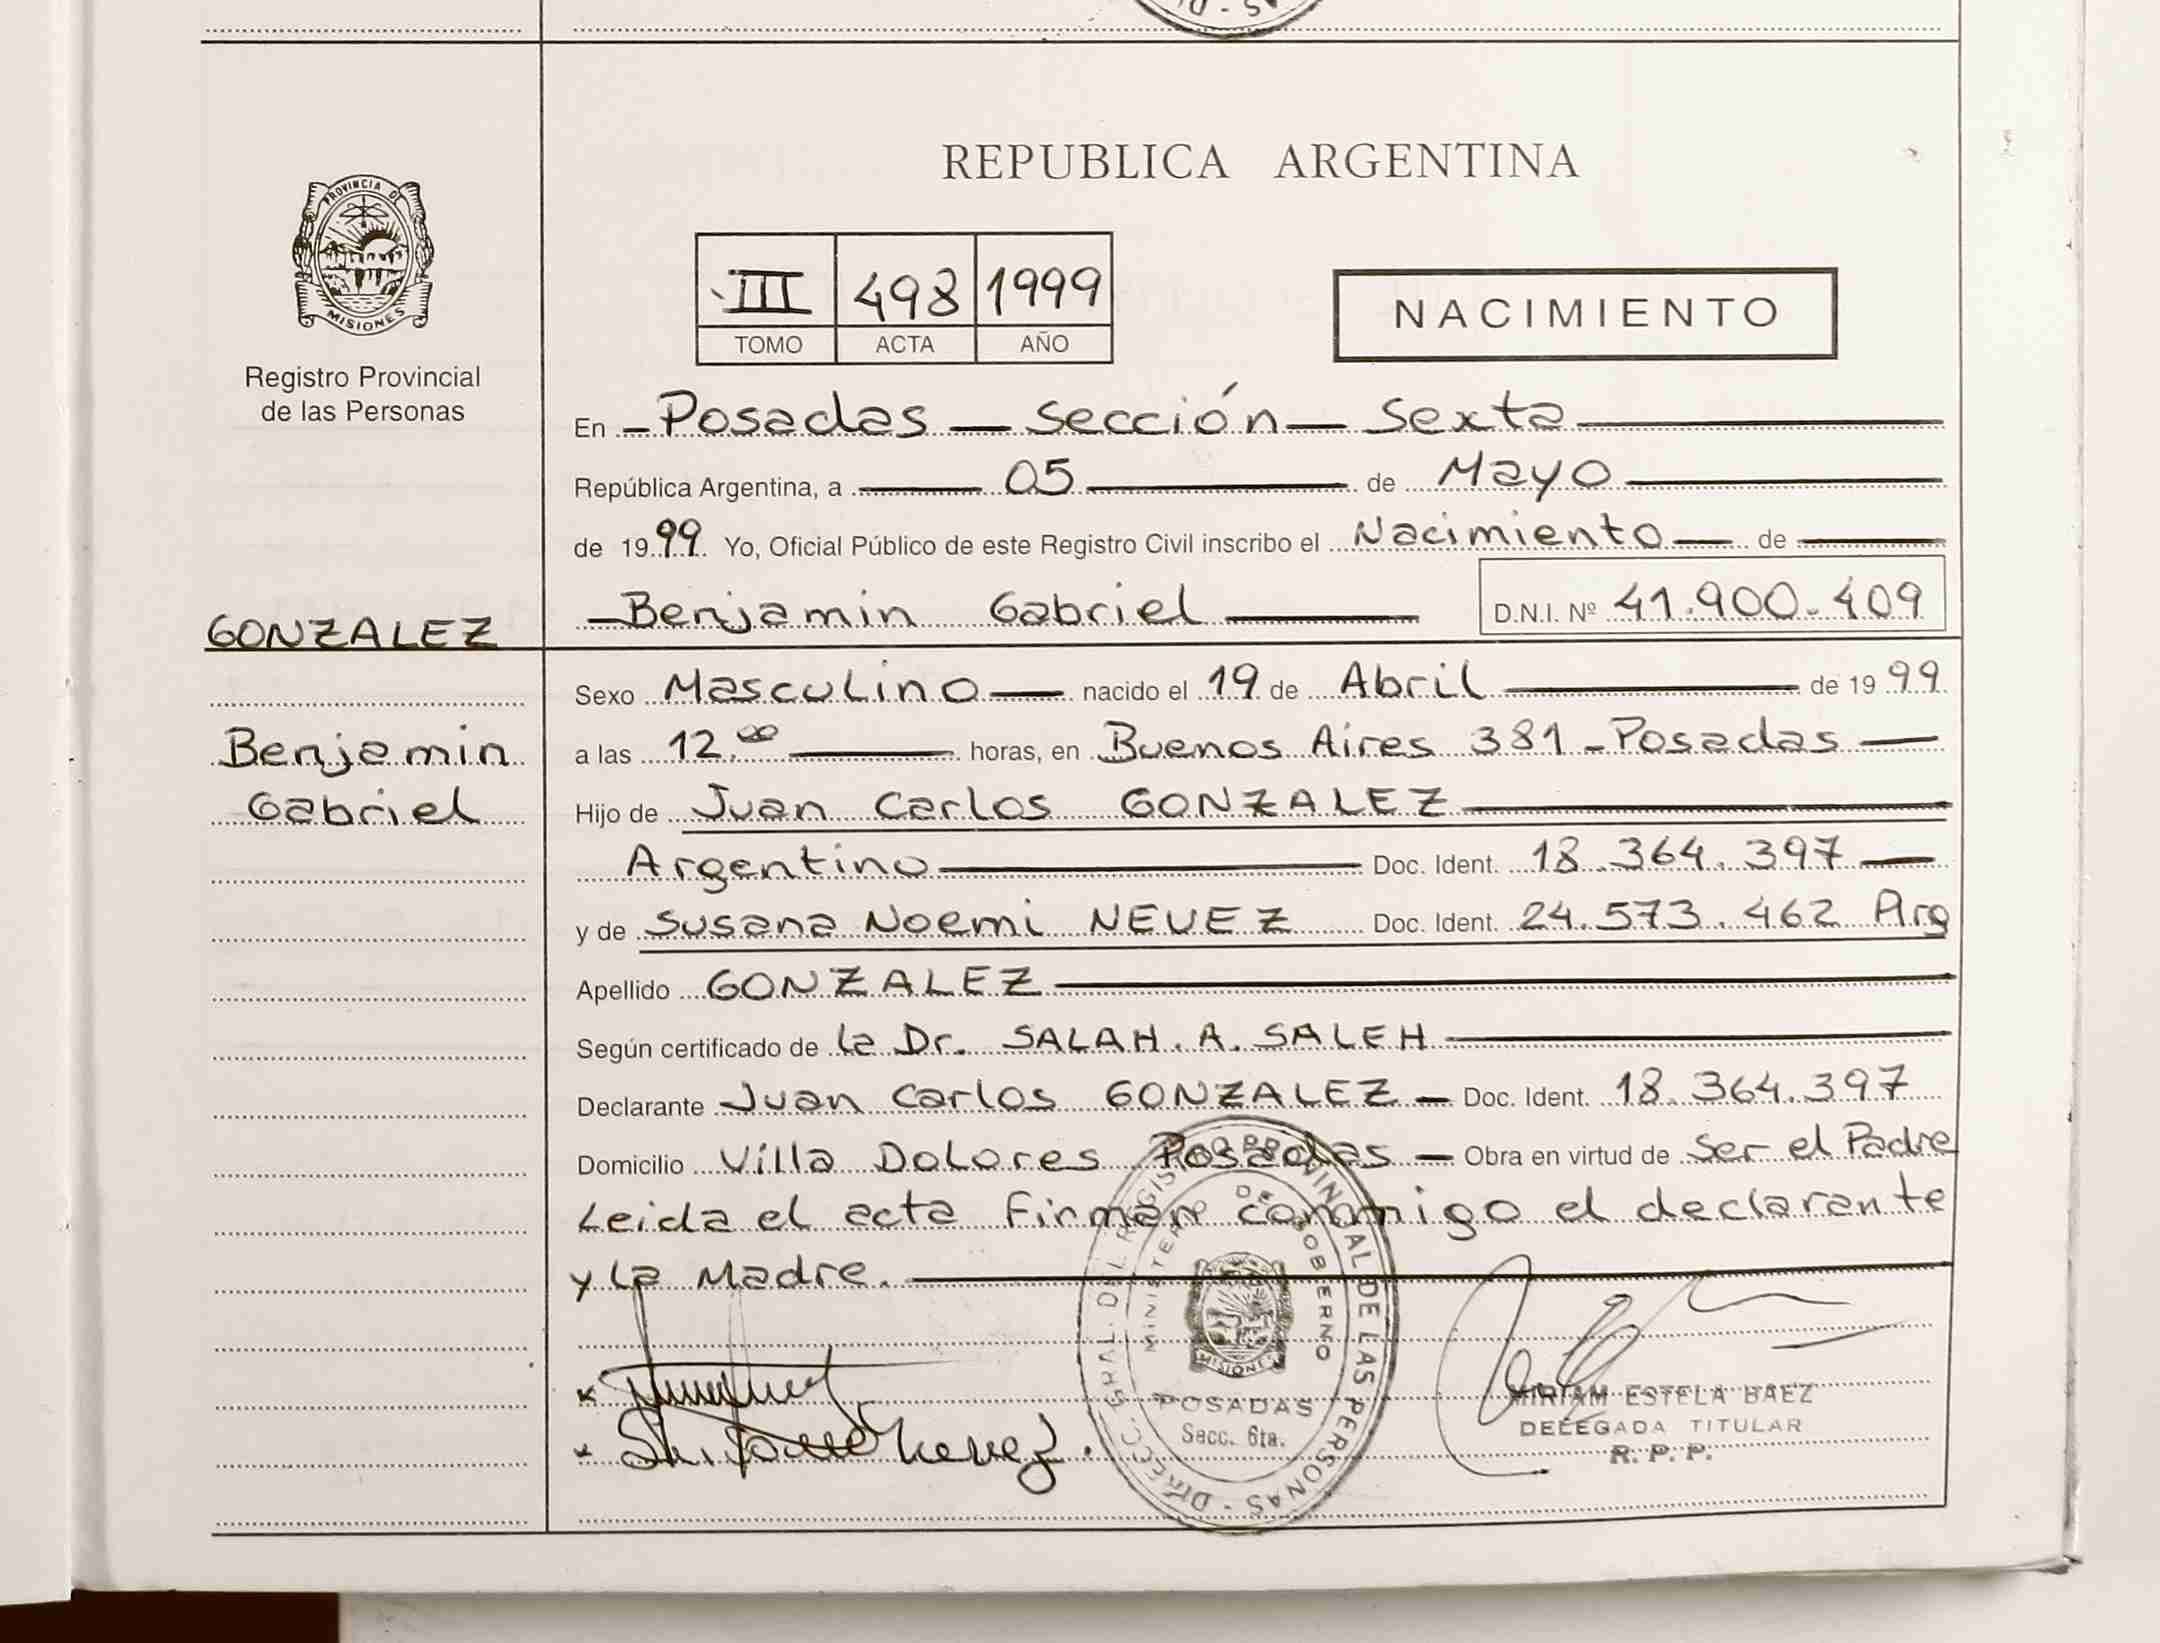 PROVINCIA DE
MISIONES
Registro Provincial
de las Personas
GONZALEZ
Benjamin
Gabriel
REPUBLICA ARGENTINA
III 498 1999
TOMO ACTA AÑO
NACIMIENTO
En Posadas — Sección — Sexta
República Argentina, a 05 de Mayo
de 1999 Yo, Oficial Público de este Registro Civil inscribo el Nacimiento — de
Benjamin Gabriel D.N.I. Nº 41.900.409
Sexo Masculino — nacido el 19 de Abril de 1999
a las 12,00 horas, en Buenos Aires 381 - Posadas —
Hijo de Juan Carlos GONZALEZ
Argentino Doc. Ident. 18.364.397 —
y de Susana Noemi NEUEZ Doc. Ident. 24.573.462 Arg
Apellido GONZALEZ
Según certificado de la Dr. SALAH. A. SALEH
Declarante Juan Carlos GONZALEZ — Doc. Ident. 18.364.397
Domicilio Villa Dolores Posadas — Obra en virtud de Ser el Padre
Leida el acta Firman conmigo el declarante
y la Madre.
DIRECC. GRAL. DEL REGISTRO PROVINCIAL DE LAS PERSONAS
MINISTERIO DE GOBIERNO
MISIONES
POSADAS
Secc. 6ta.
MIRIAM ESTELA BAEZ
DELEGADA TITULAR
R. P. P.